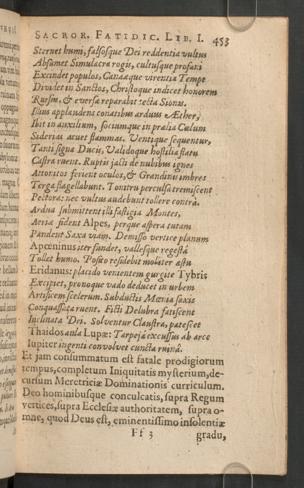 SACROR. FATIDIC. LIB. I. 453
Sternet humi, falsosque Dei reddentia vultus
Absumet Simulacra rogis, cultusque profani
Excindet populos, Canaaque virentia Tempe
Dividet in Sanctos, Christoque indicet honorem
Rursum, & eversa reparabit tecta Sionis.
Illius applaudens conatibus arduus Æther,
Ibit in auxilium, sociumque in prælia Cælum
Sidereas acuet flammas. Ventique sequentur,
Tanti signa Ducis, Validoque hostilia flatu
Castra ruent. Ruptis jacti de nubibus ignes
Attonitos ferient oculos, & Grandinis imbres
Terga flagellabunt. Tonitru perculsa tremiscent
Pectora: nec vultus audebunt tollere contrà.
Ardua submittent illi fastigia Montes,
Aeriæ sident Alpes, perque aspera tutam
Pandent Saxa viam. Demisso vertice planum
Apœninus iter sandet, vallesque regestâ
Tollet humo. Posito residebit moliter æstu
Eridanus: placido venientem gurgite Tybris
Excipiet, pronoque vado deducet in urbem
Artificem scelerum. Subductis Mœnia saxis
Conquassata ruent. Ficti Delubra fatiscent
Inclinata Dei. Solventur Claustra, patescet
Thaidos aula Lupæ: Tarpejâ excussus ab arce
Iupiter ingenti convolvet cuncta ruinâ.
Et jam consummatum est fatale prodigiorum
tempus, completum Iniquitatis mysterium, de-
cursum Meretriciæ Dominationis curriculum.
Deo hominibusque conculcatis, supra Regum
vertices, supra Ecclesiæ authoritatem, supra o-
mne, quod Deus est, eminentissimo insolentiæ
Ff 3 gradu,